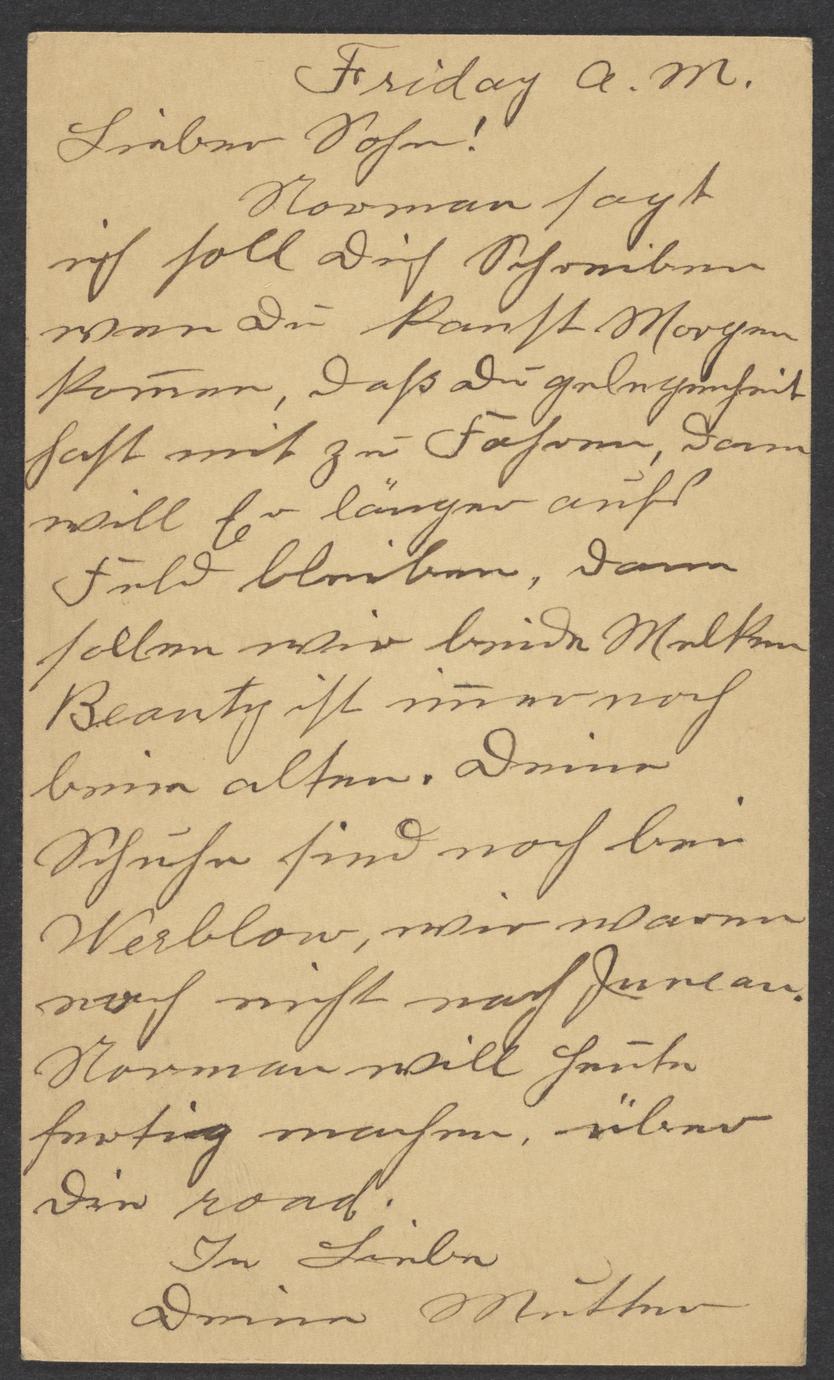 Friday A. M.
Lieber Sohn!
Norman sagt
ich soll Dich Schreiben
wen Du kanst Morgen
kom̅en, daß Du gelegenheit
hast mit zu Fahren, dann
will Er länger aufs
Feld bleiben, dann
sollen wir beide Melken
Beauty ist im̅er noch
beim alten. Deine
Schuhe sind noch bei
Werblow, wir waren
noch nicht nach Juneau.
Norman will heute
fertig machen, über
Die road.
In Liebe
Deine Mutter